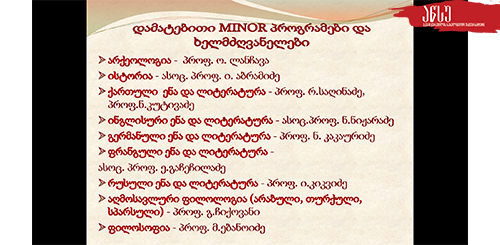 ანსუ
დამატებითი MINOR პროგრამები და
ხელმძღვანელები
➤ არქეოლოგია - პროფ. ო. ლანჩავა
➤ ისტორია - ასოც. პროფ. ი. აბრამიძე
➤ ქართული ენა და ლიტერატურა - პროფ. რ.საღინაძე,
პროფ.ნ.კუტივაძე
➤ ინგლისური ენა და ლიტერატურა - ასოც.პროფ. ნ.ნიჟარაძე
➤ გერმანული ენა და ლიტერატურა - პროფ. ნ. კაკაურიძე
➤ ფრანგული ენა და ლიტერატურა -
ასოც. პროფ. ე.გაჩეჩილაძე
➤ რუსული ენა და ლიტერატურა - პროფ. ი.კიკვიძე
➤ აღმოსავლური ფილოლოგია (არაბული, თურქული,
სპარსული) - პროფ. გ.ჩიქოვანი
➤ ფილოსოფია - პროფ. მ.ეზანოიძე